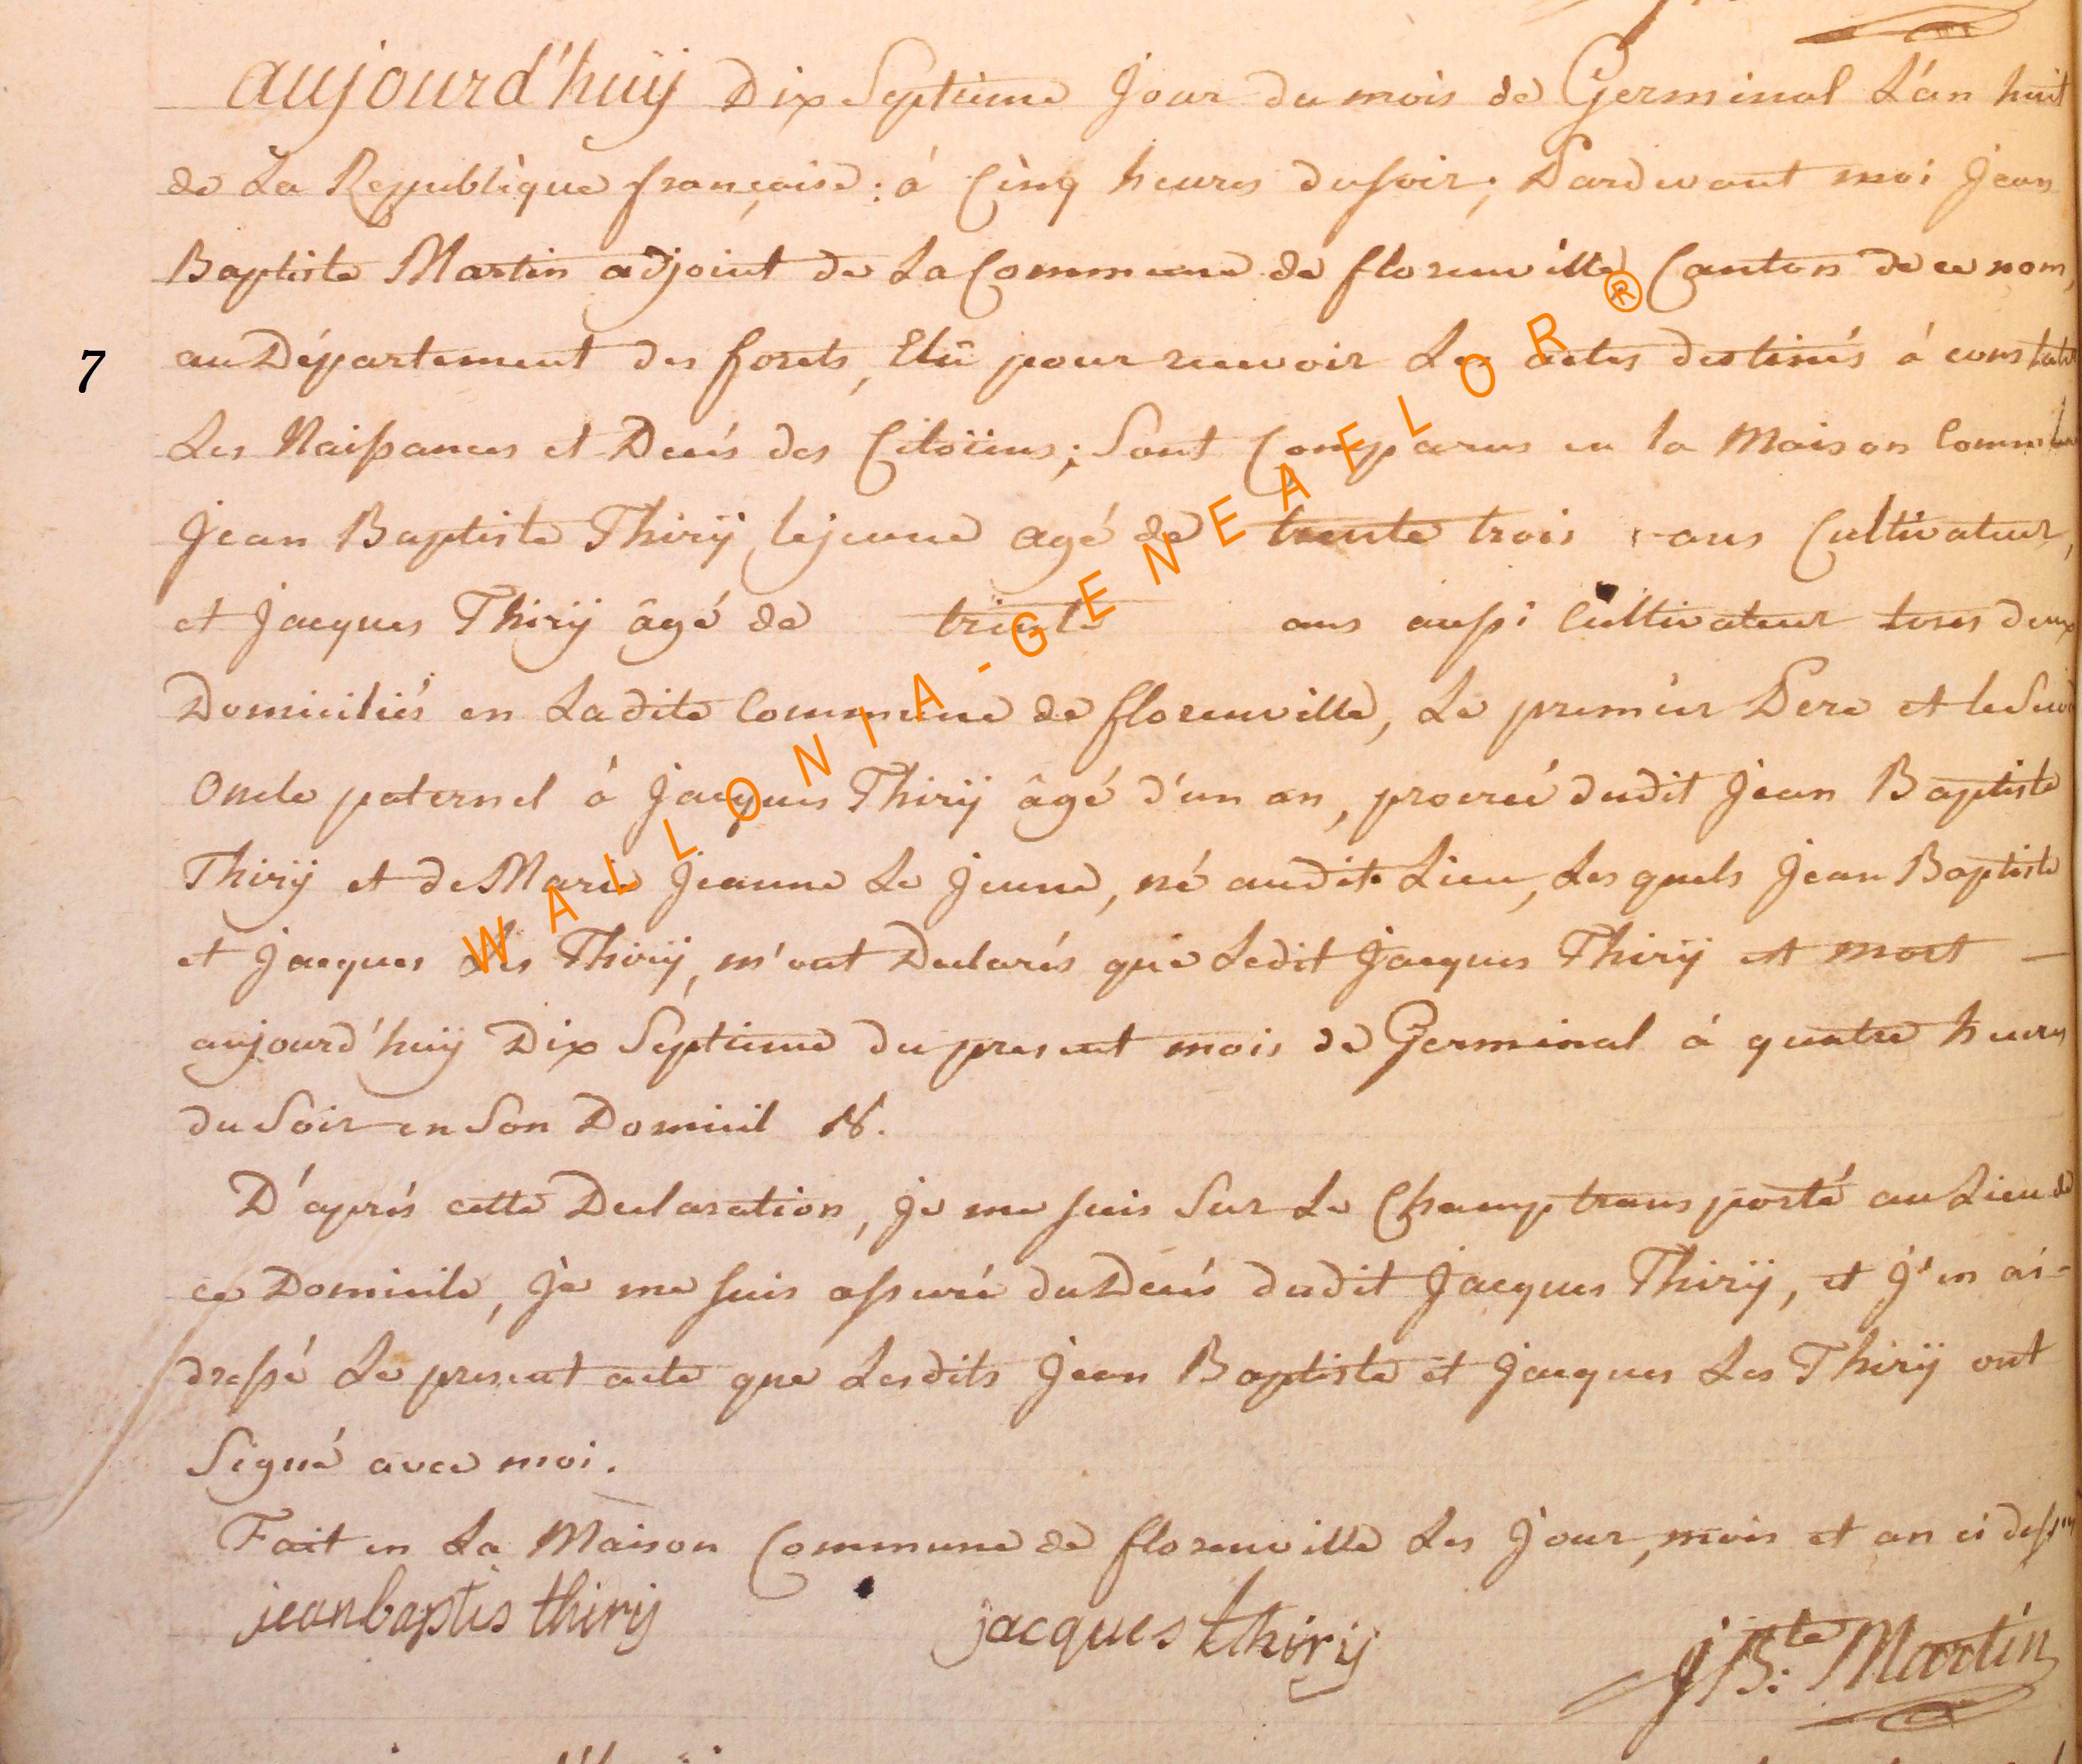 aujourd'huÿ Dix Septieme Jour du mois de Germinal L'an huit
de La Republique française : á Cinq heures du soir ; Pardevant moi Jean
Baptiste Martin adjoint de La Commune de florenville Canton de ce nom,
au Département des forets, Elû pour recevoir Les actes destinés á constater
7
Les Naissances et Decés des Citoïens ; Sont Comparus en la Maison Commune
Jean Baptiste Thirÿ lejeune agé de trente trois ans Cultivateur,
et Jacques Thirÿ âgé de trente ans aussi Cultivateur tous deux
Domiciliés en Ladite Commune de florenville, Le premier Pere et le Second
Oncle paternel á Jacques Thirÿ âgé d'un an, procreé dudit Jean Baptiste
Thirÿ et de Marie Jeanne Le Jeune, né audit Lieu, Lesquels Jean Baptiste
et Jacques Les Thirÿ, m'ont Declarés que Ledit Jacques Thirÿ est mort —
aujourd'huÿ Dix Septieme du present mois de Germinal á quatre heures
du Soir en Son Domicil
D'aprés cette Declaration, je me suis Sur Le Champ transporté au Lieu de
ce Domicile, je me suis assuré du Decés dudit Jacques Thirÿ, et j'en ai-
dressé Le present acte que Lesdits Jean Baptiste et Jacques Les Thirÿ ont
Signé avec moi.
Fait en La Maison Commune de florenville Les Jour, mois et an ci dessus
jean baptis thirÿ jacques thirÿ J Bte. Martin
WALLONIA-GENEAELOR®